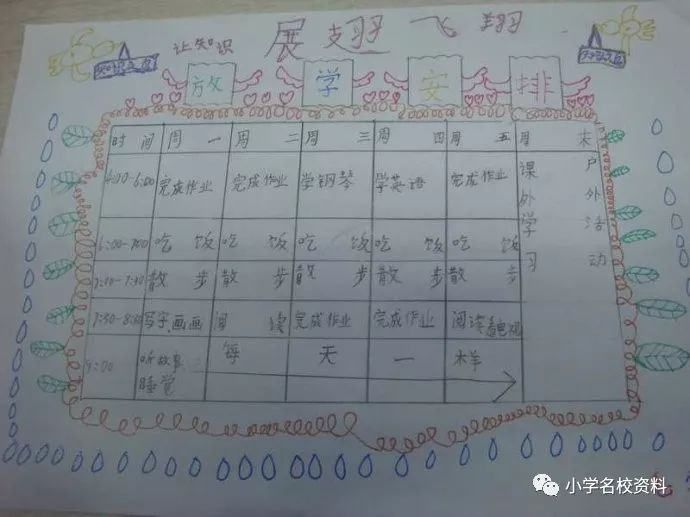 让知识 展翅飞翔
放学安排
时间 周一 周二 周三 周四 周五 周末
4:00-6:00 完成作业 完成作业 学钢琴 学英语 完成作业 课外学习 户外活动
6:00-7:00 吃饭 吃饭 吃饭 吃饭 吃饭
7:00-7:30 散步 散步 散步 散步 散步
7:30-8:30 写字,画画 阅读 完成作业 完成作业 阅读 看电视
9:00 听故事 睡觉 每天一样
小学名校资料